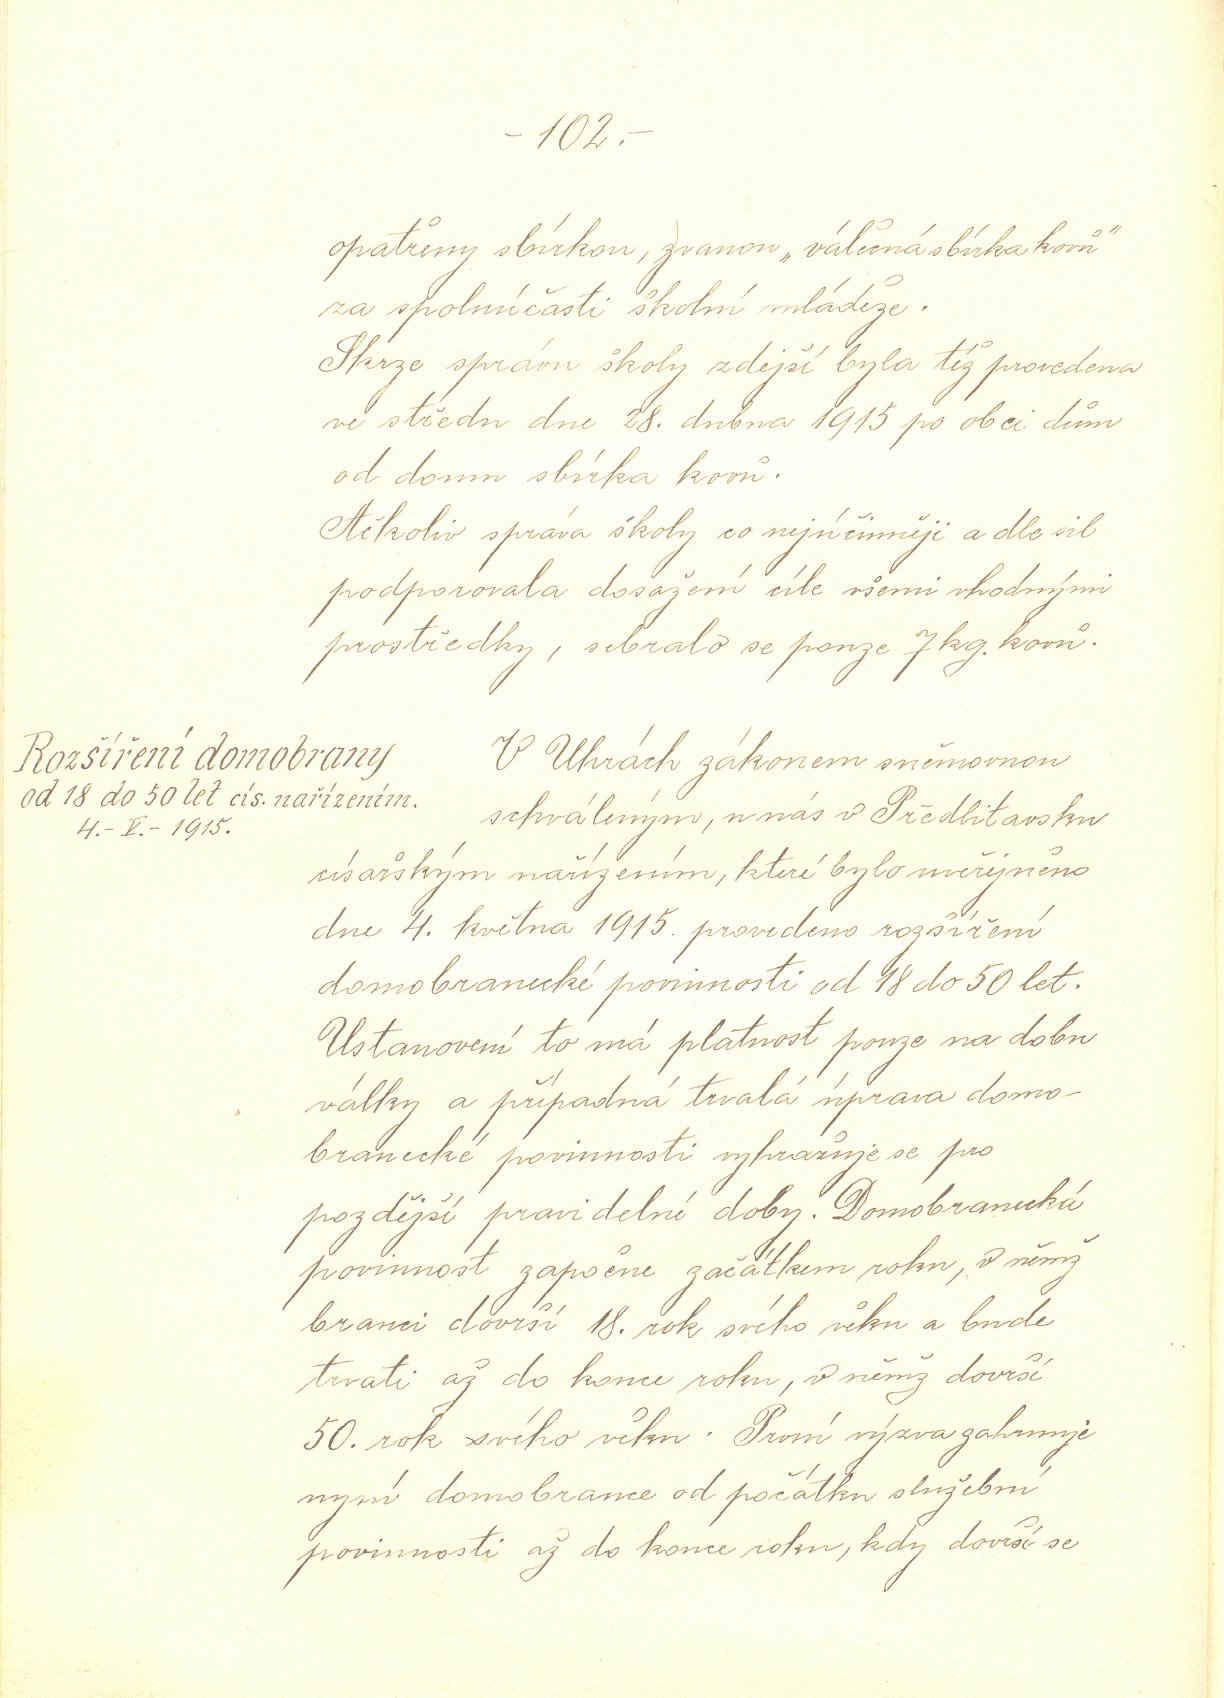 - 102. -
opatřeny sbírkou, zvanou „válečná sbírka kovů"
za spoluúčasti školní mládeže.
Skrze správu školy zdejší byla též provedena
ve středu dne 28. dubna 1915 po obci dům
od domu sbírka kovů.
Ačkoliv správa školy co nejúčinněji a dle sil
podporovala dosažení cíle všemi vhodnými
prostředky, sebralo se pouze 7 kg. kovů.
Rozšíření domobrany
od 18 do 50 let cís. nařízením.
4.- V.- 1915.
V Uhrách zákonem sněmovnou
schváleným, u nás v Předlitavsku
císařským nařízením, které bylo uveřejněno
dne 4. května 1915. provedeno rozšíření
domobranecké povinnosti od 18 do 50 let.
Ustanovení to má platnost pouze na dobu
války a případná trvalá úprava domo-
branecké povinnosti vyhražuje se pro
pozdější pravidelné doby. Domobranecká
povinnost započne začátkem roku, v němž
branci dovrší 18. rok svého věku a bude
trvati až do konce roku, v němž dovrší
50. rok svého věku. První výzva zahrnuje
nyní domobrance od počátku služební
povinnosti až do konce roku, kdy dovrší se